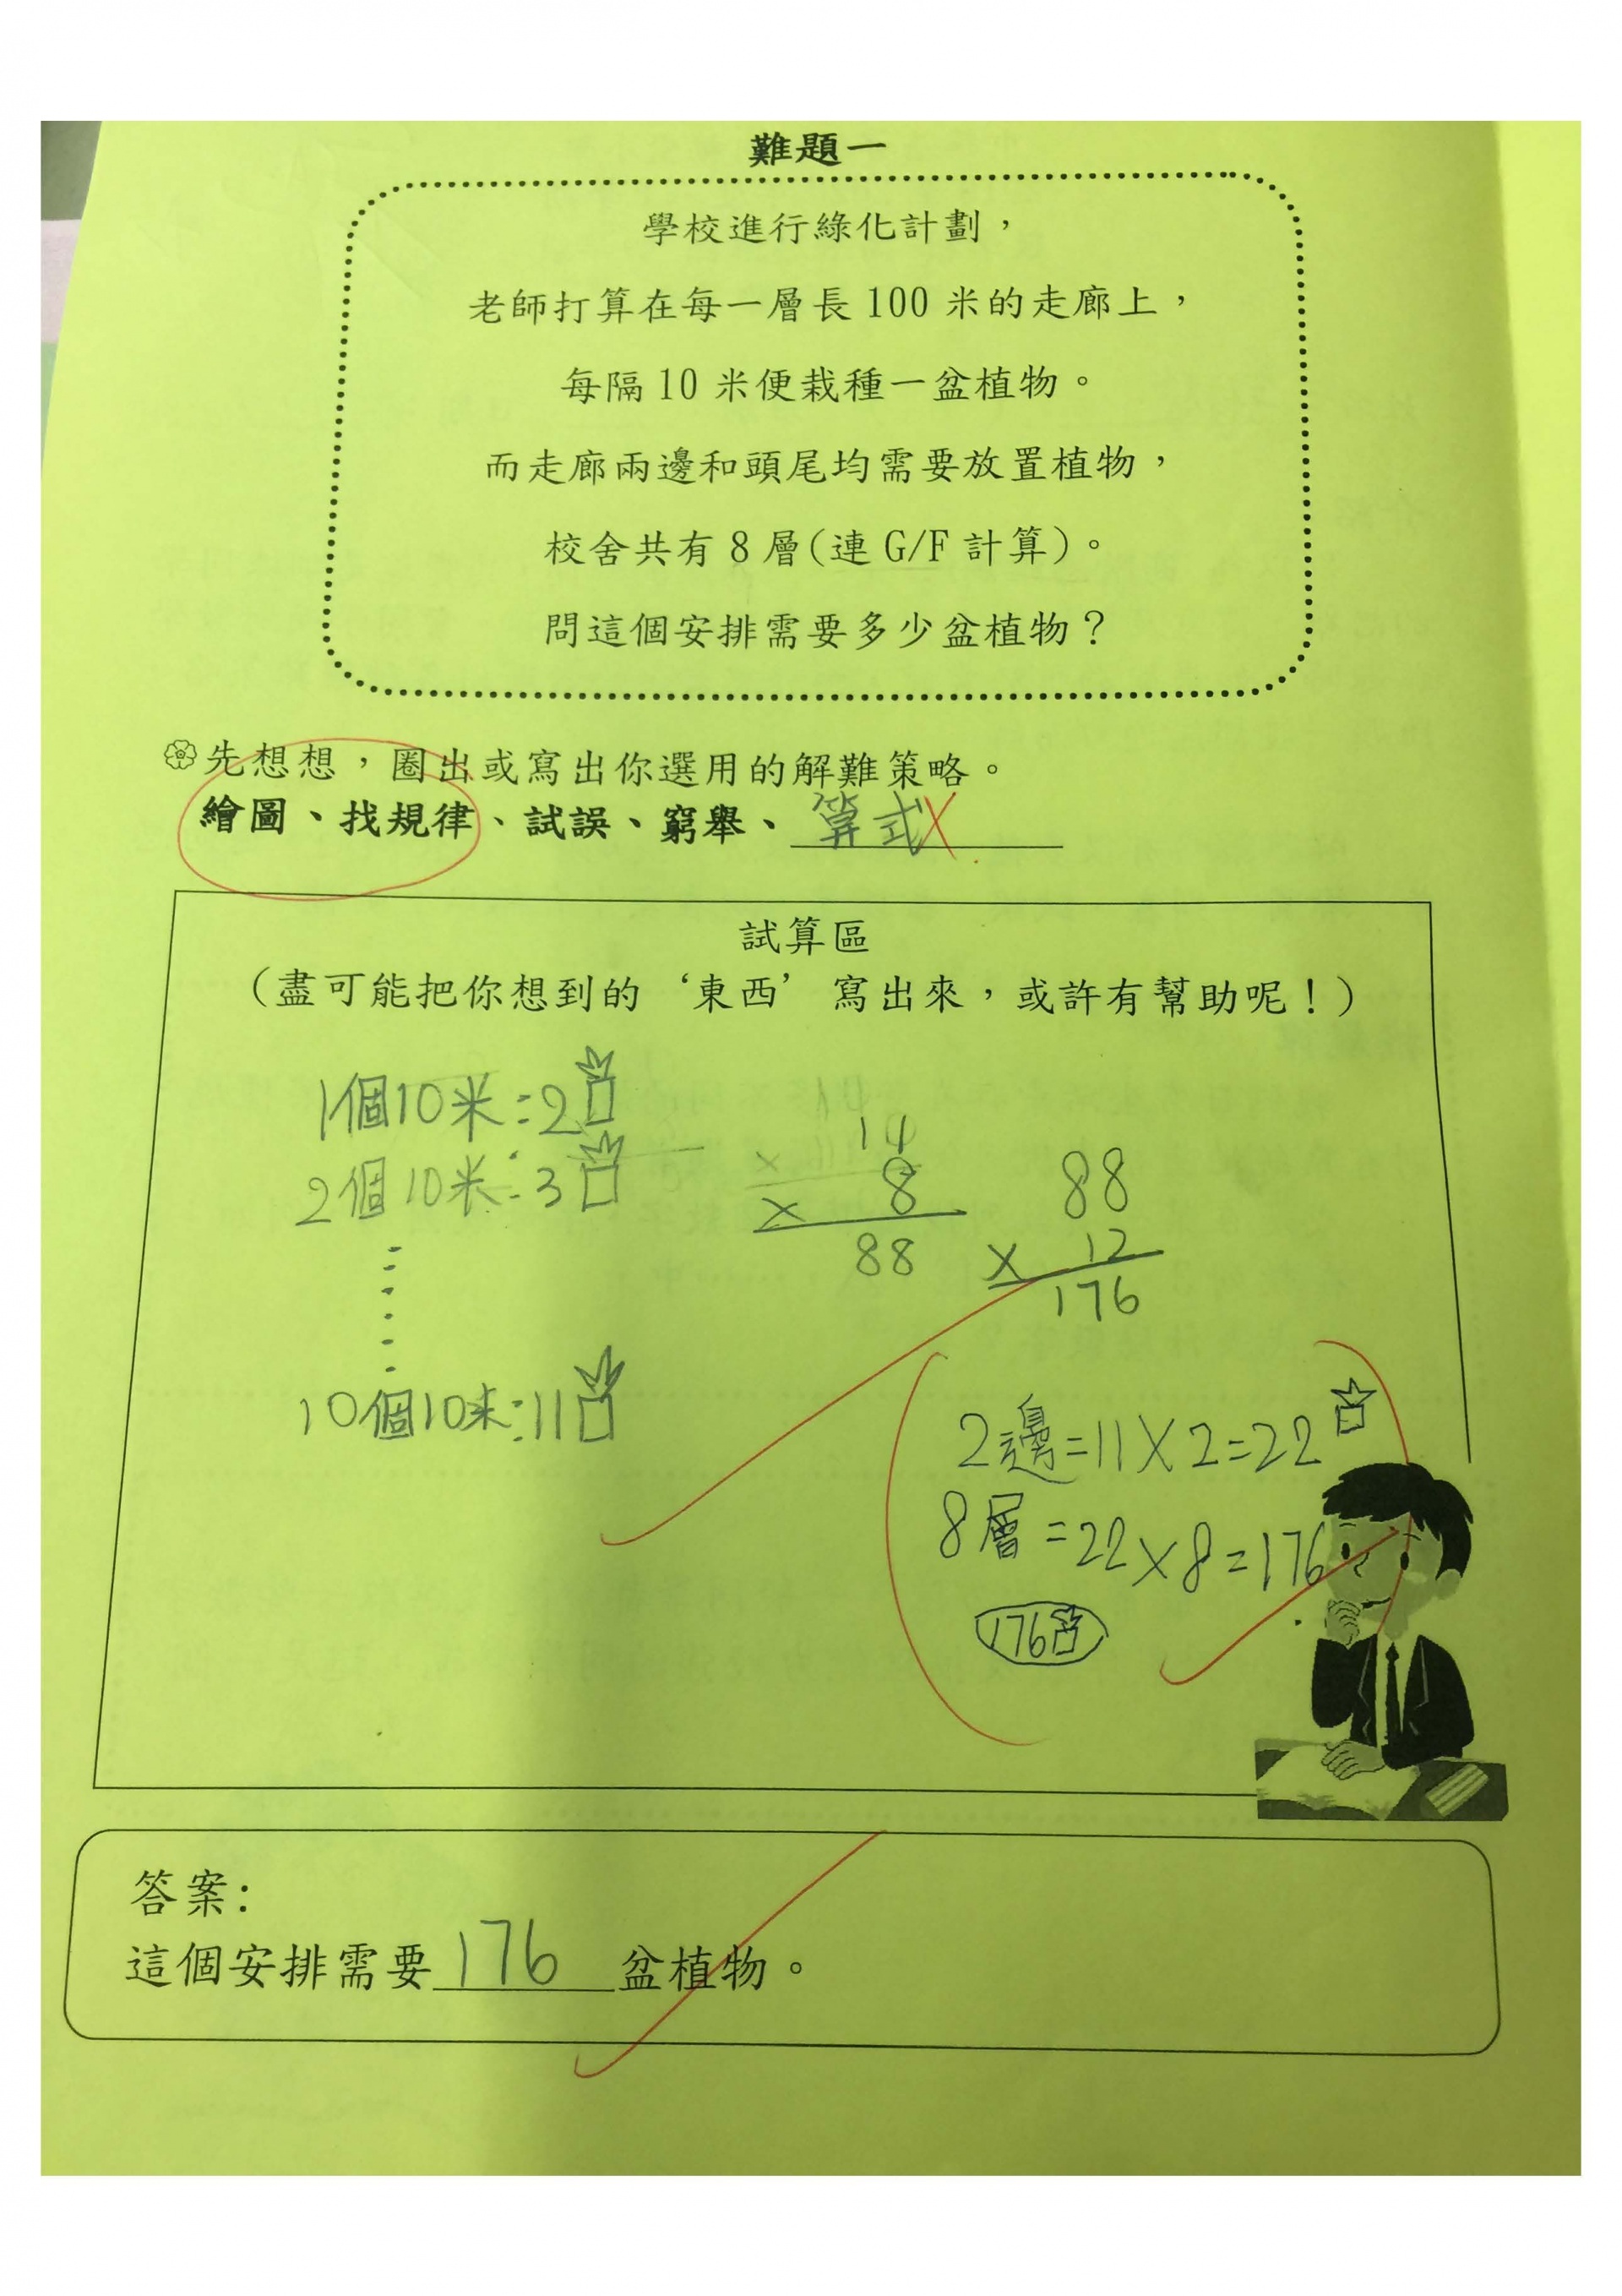 難題一
學校進行綠化計劃，
老師打算在每一層長 100 米的走廊上，
每隔 10 米便栽種一盆植物。
而走廊兩邊和頭尾均需要放置植物，
校舍共有 8 層(連 G/F 計算)。
問這個安排需要多少盆植物？
先想想，圈出或寫出你選用的解難策略。
繪圖、找規律、試誤、窮舉、算式
試算區
(盡可能把你想到的‘東西’寫出來，或許有幫助呢！)
1個10米:2
2個10米:3
10個10米:11
8
88
88
× 12
176
2邊=11×2=22
8層=22×8=176
176
答案:
這個安排需要 176 盆植物。